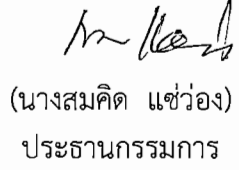 (นางสมคิด แซ่ว่อง)
ประธานกรรมการ